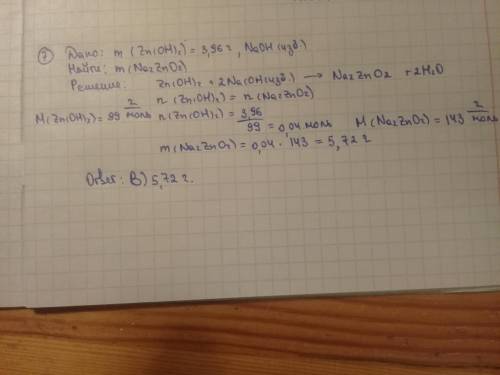 ⑦ Дано: m (Zn(OH)₂) = 3,96 г, NaOH (изб.)
Найти: m(Na₂ZnO₂)
Решение: Zn(OH)₂ + 2NaOH(изб.) → Na₂ZnO₂ + 2H₂O
n (Zn(OH)₂) = n (Na₂ZnO₂)
M(Zn(OH)₂) = 99 г/моль n(Zn(OH)₂) = 3,96/99 = 0,04 моль M(Na₂ZnO₂) = 143 г/моль
m(Na₂ZnO₂) = 0,04 · 143 = 5,72 г
Ответ: В) 5,72 г.